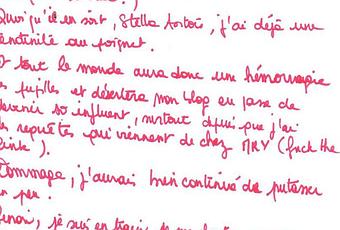 Quoi qu'il en soit, Stella Artois, j'ai déjà une
tendinite au poignet.
Et tout le monde aura donc une hémorragie
des pupilles et désertera mon blog en passe de
devenir so influent, surtout depuis que j'ai
des requêtes qui viennent de chez MRY (fuck the
link).
Dommage, j'aurais bien continué de putasser
un peu.
Sinon, je suis en train de